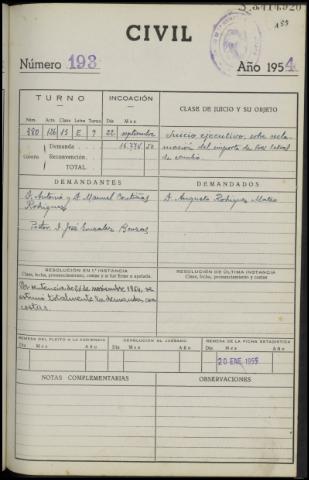 CIVIL
Número 193
Año 1954
TURNO
INCOACIÓN
CLASE DE JUICIO Y SU OBJETO
Núm. Acta Clase Letra Turno Día Mes
880 126 15 E 9 22 septiembre
Demanda 16.776,50
Cuantía Reconvención
TOTAL
Juicio ejecutivo, sobre recla-
mación del importe de tres letras
de cambio.
DEMANDANTES
DEMANDADOS
D. Antonio y D. Manuel
Rodríguez
D. Augusto Rodríguez Mateo
D. José González
RESOLUCIÓN EN 1.ª INSTANCIA
Clase, fecha, pronunciamiento, costas y si fue firme o apelada.
RESOLUCIÓN DE ÚLTIMA INSTANCIA
Clase, fecha, pronunciamiento y costas
Por sentencia de noviembre 1954, se
estimó totalmente la demanda con
costas.
REMESA DEL PLEITO A LA AUDIENCIA
DEVOLUCIÓN AL JUZGADO
REMESA DE LA FICHA ESTADÍSTICA
Día Mes Año
Día Mes Año
Día Mes Año
20 ENE. 1955
NOTAS COMPLEMENTARIAS
OBSERVACIONES